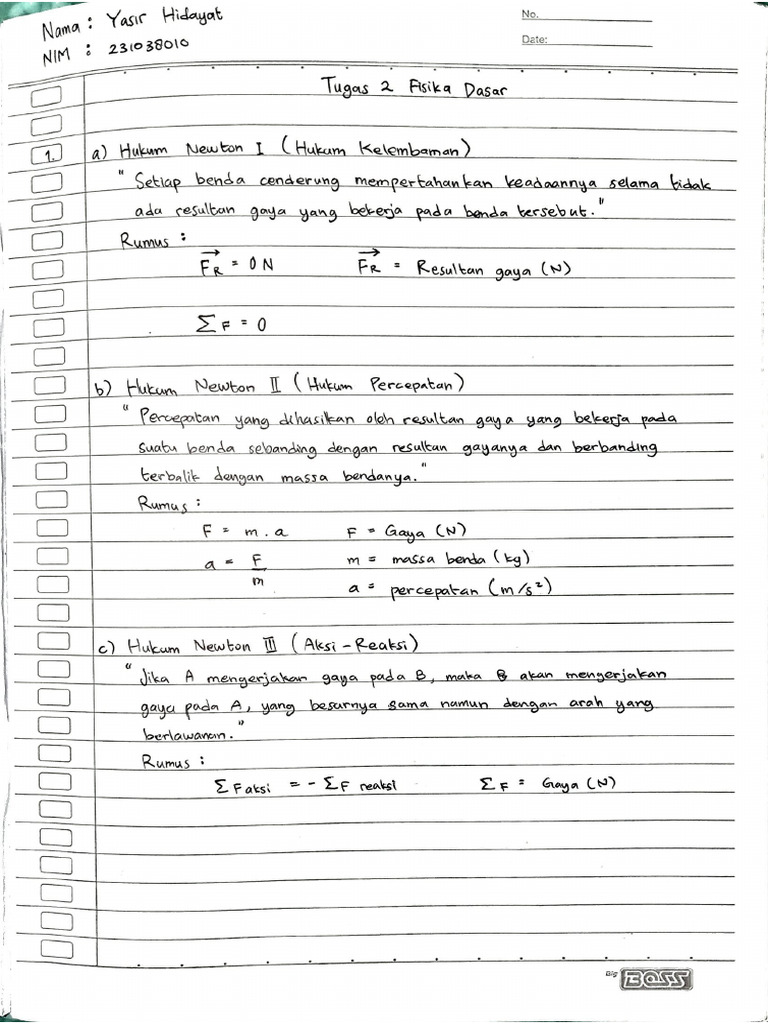 Nama : Yasir Hidayat
NIM : 231038010
No.
Date:
Tugas 2 Fisika Dasar
1. a) Hukum Newton I (Hukum Kelembaman)
" Setiap benda cenderung mempertahankan keadaannya selama tidak
ada resultan gaya yang bekerja pada benda tersebut."
Rumus :
→FR = 0 N →FR = Resultan gaya (N)
∑F = 0
b) Hukum Newton II (Hukum Percepatan)
" Percepatan yang dihasilkan oleh resultan gaya yang bekerja pada
suatu benda sebanding dengan resultan gayanya dan berbanding
terbalik dengan massa bendanya."
Rumus :
F = m . a F = Gaya (N)
a = F/m m = massa benda (kg)
a = percepatan (m/s²)
c) Hukum Newton III (Aksi - Reaksi)
" Jika A mengerjakan gaya pada B, maka B akan mengerjakan
gaya pada A, yang besarnya sama namun dengan arah yang
berlawanan."
Rumus :
∑F aksi = - ∑F reaksi ∑F = Gaya (N)
Big BOSS